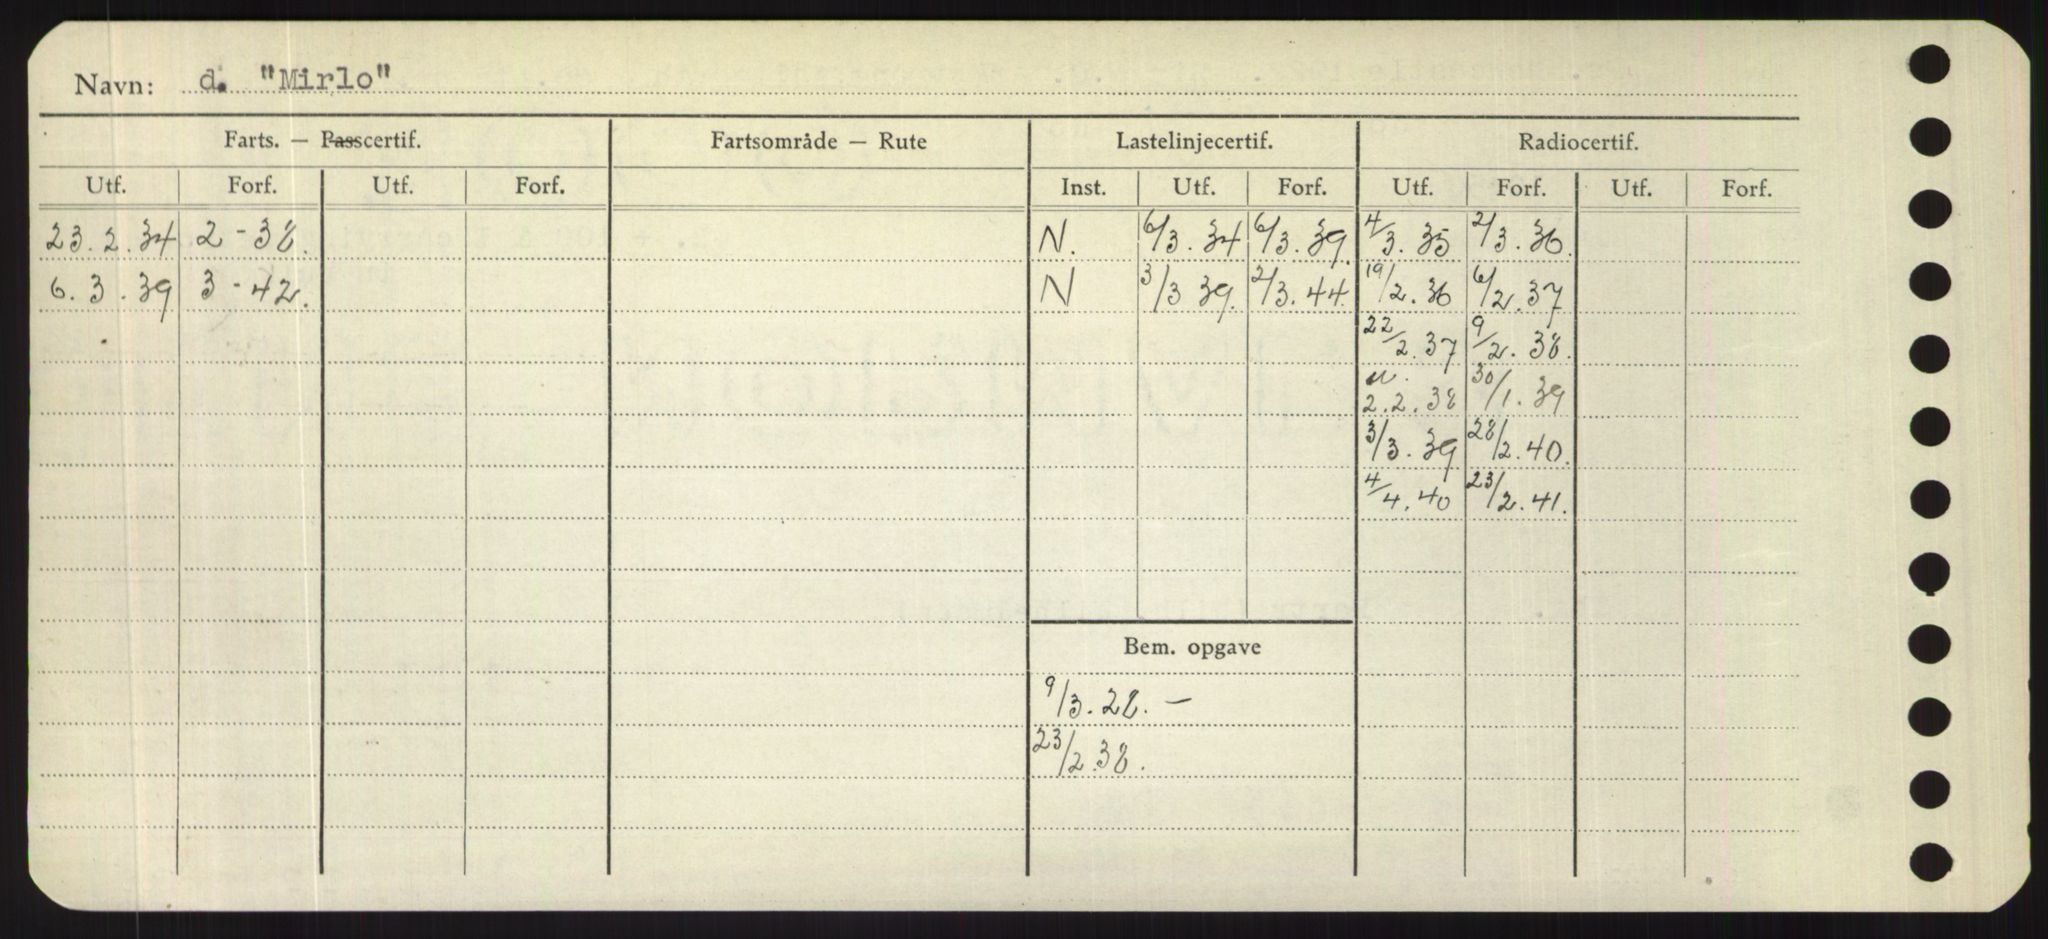 Navn: d. "Mirlo"
Farts. — Passcertif. Fartsområde — Rute Lastelinjecertif. Radiocertif.
Utf. Forf. Utf. Forf. Inst. Utf. Forf. Utf. Forf. Utf. Forf.
23.2.34 2-38. N. 6/3.34 6/3.39. 4/3.35 2/3.36.
6.3.39 3-42. N 3/3 39. 2/3.44. 19/2.36 6/2.37
22/2.37 9/2.38.
2.2.38 30/1.39
3/3.39 28/2.40.
4/4.40 23/2.41.
Bem. opgave
9/3.28. —
23/2.38.